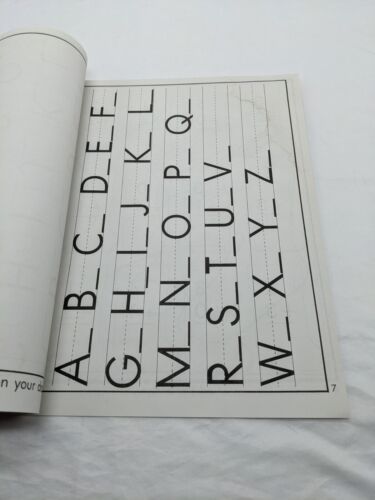 A_ B_ C_ D_ E_ F_
G_ H_ I_ J_ K_ L
M_ N_ O_ P_ Q_
R_ S_ T_ U_ V_
W_ X_ Y_ Z_
7
your